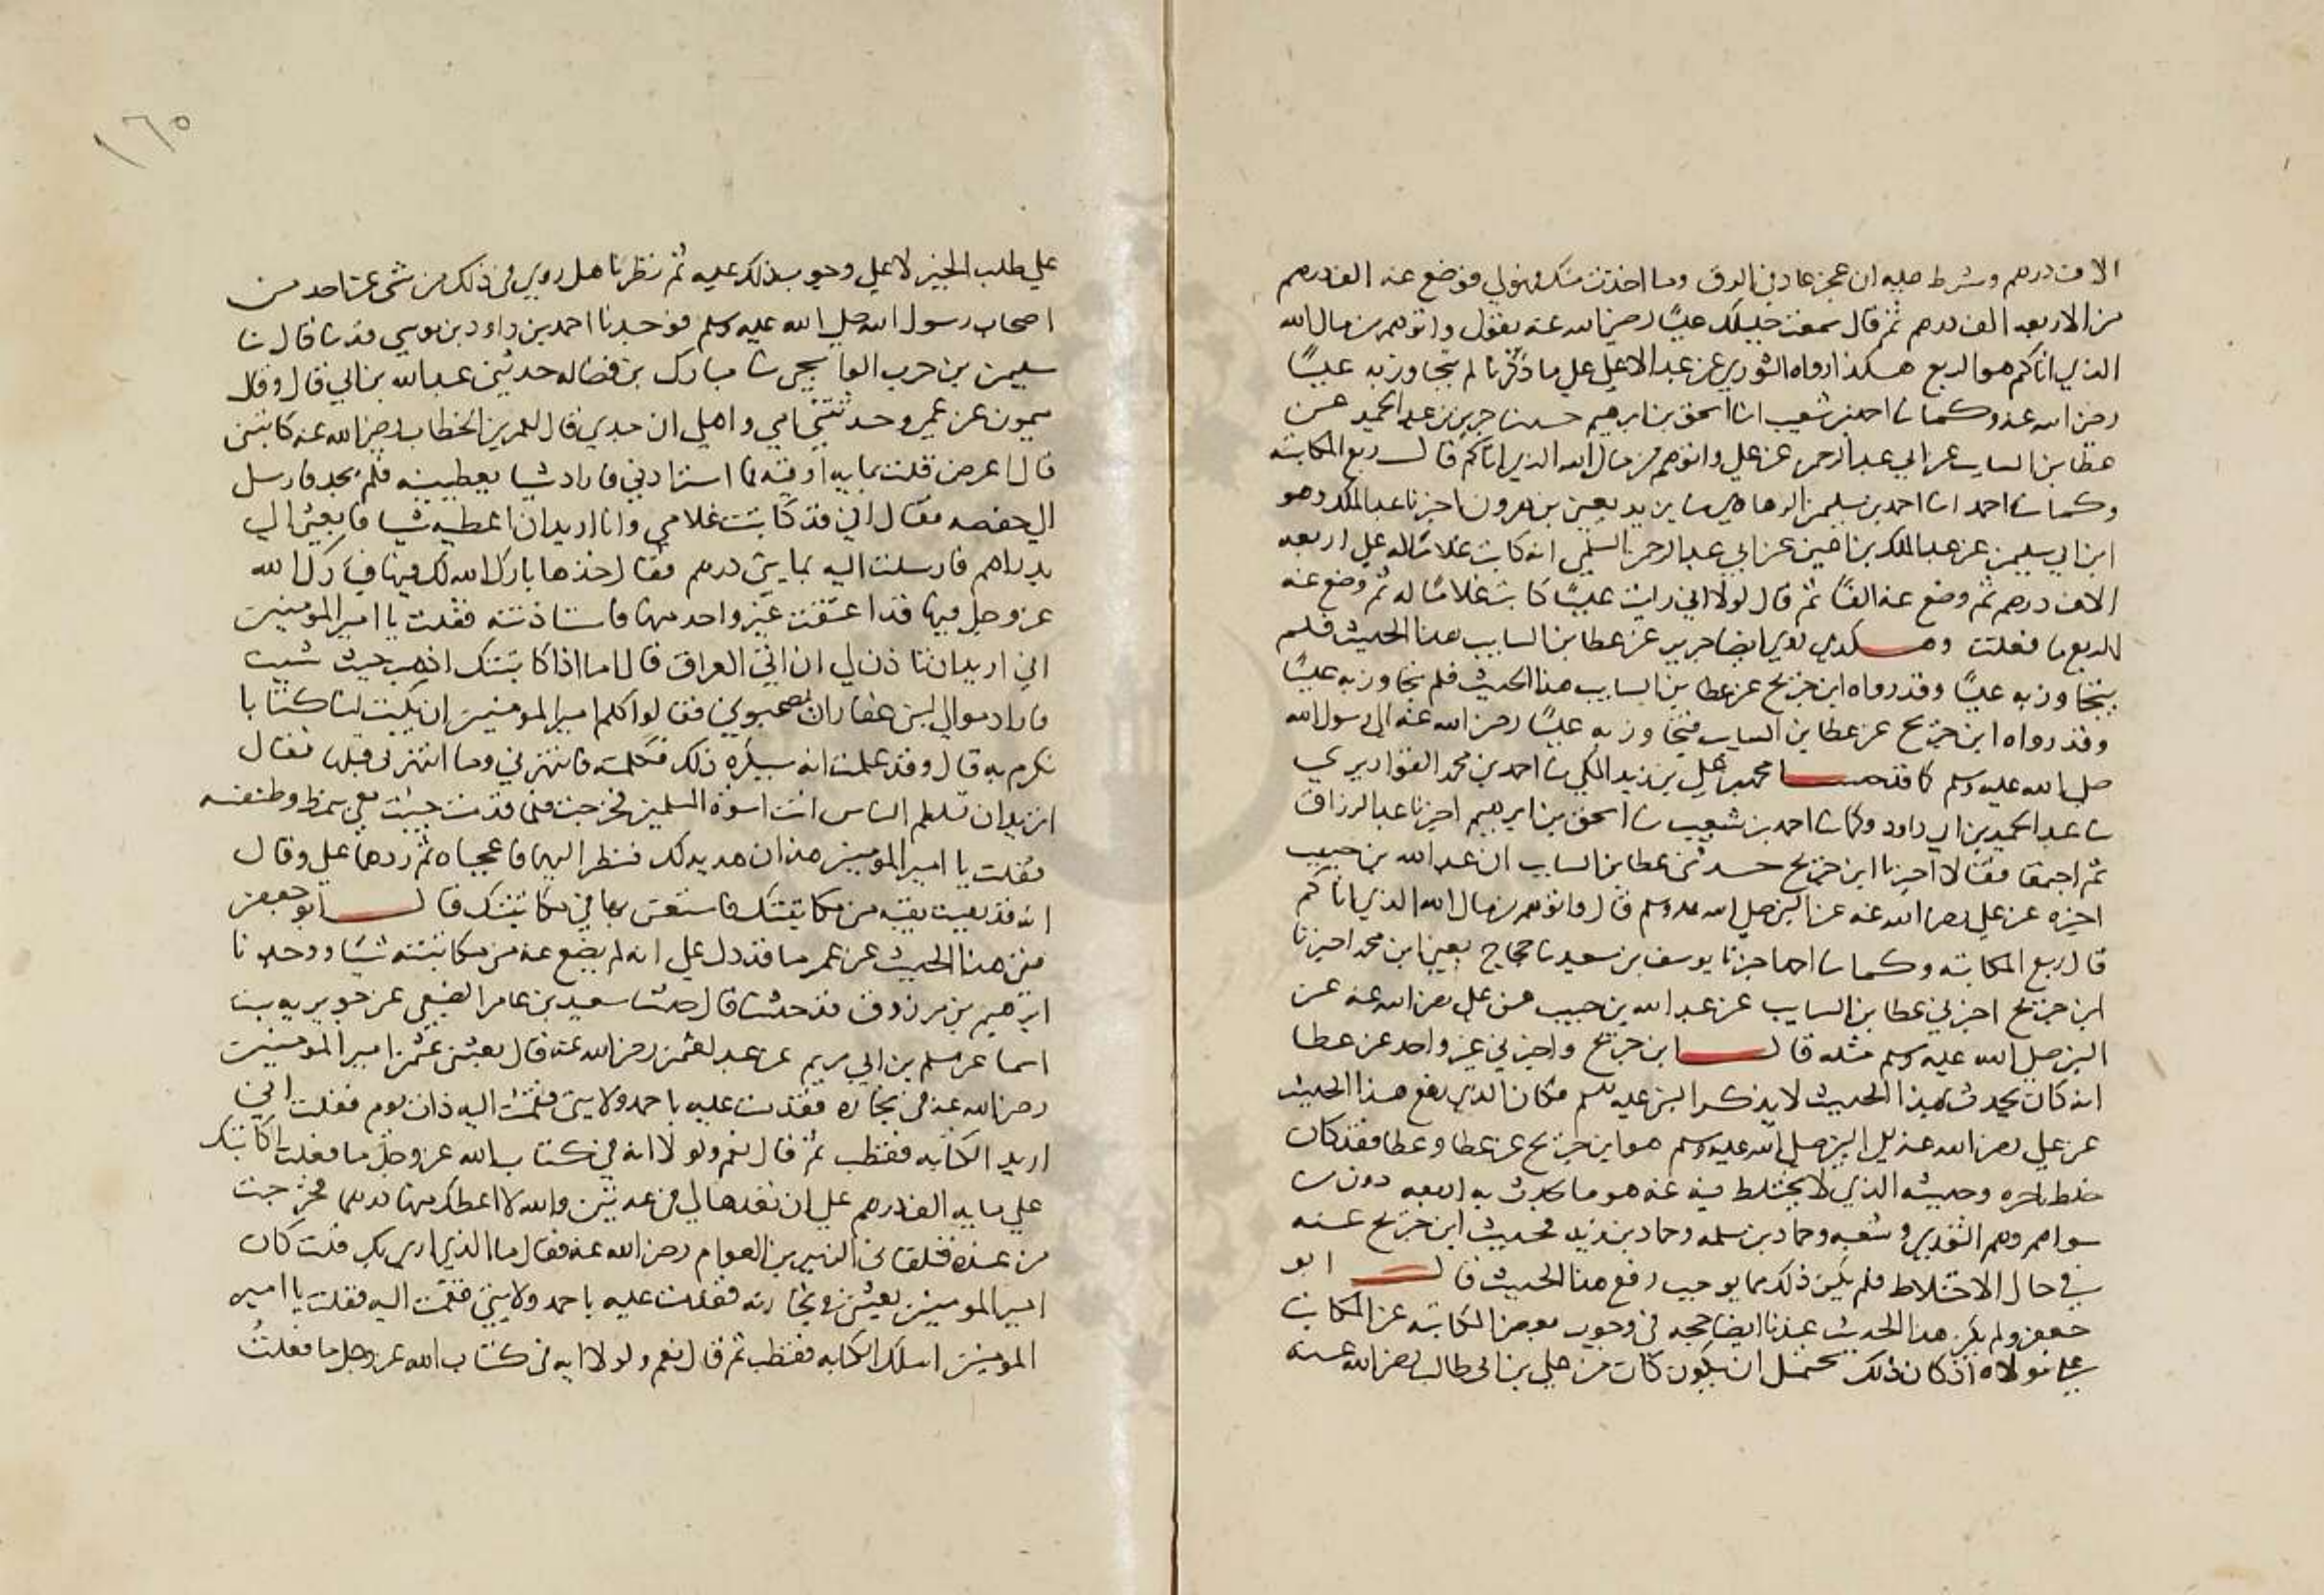 الاف درهم وشرط عليه ان عجز عاد في الرق وما اخذت منك فهو لي فوضع عنه الف درهم
من الاربعه الف درهم ثم قال سمعت خليلك عليًا رضي الله عنه يقول واتوهم من مال الله
الذي اتاكم هو الربع هكذا رواه الثوري عن عبد الاعلي علي ما ذكرنا لم يتجاوز به عليًا
رضي الله عنه وكما نا احمد بن شعيب انا اسحق بن ابرهيم حدثنا جرير بن عبد الحميد عن
عطا بن السايب عن ابي عبد الرحمن عن علي واتوهم من مال الله الذي اتاكم قال ربع المكاتبة
وكما نا احمد انا احمد بن سليمن الرهاوي نا يزيد يعني بن هرون اخبرنا عبد الملك وهو
ابن ابي سليمن عن عبد الملك بن اعين عن ابي عبد الرحمن السلمي انه كاتب غلامًا له علي اربعه
الاف درهم ثم وضع عنه الفًا ثم قال لولا اني رايت عليًا كاتب غلامًا له ثم وضع عنه
الربع ما فعلت وهكذي روي ايضا جرير عن عطا بن السايب هذا الحديث فلم
يتجاوز به عليًا وقد رواه ابن جريج عن عطا بن السايب هذا الحديث فلم يتجاوز به عليًا
وقد رواه ابن جريج عن عطا بن السايب فتجاوز به عليًا رضي الله عنه الي رسول الله
صلي الله عليه وسلم كما قد حدثنا محمد بن علي بن زيد المكي نا احمد بن محمد القواريري
نا عبد الحميد بن ابي داود وكما نا احمد بن شعيب نا اسحق بن ابرهيم اخبرنا عبد الرزاق
ثم اجتمعا فقالا اخبرنا ابن جريج حدثني عطا بن السايب ان عبد الله بن حبيب
اخبره عن علي رضي الله عنه عن النبي صلي الله عليه وسلم قال واتوهم من مال الله الذي اتاكم
قال ربع المكاتبه وكما نا احمد اخبرنا يوسف بن سعيد نا حجاج يعني ابن محمد اخبرنا
ابن جريج اخبرني عطا بن السايب عن عبد الله بن حبيب عن علي رضي الله عنه عن
النبي صلي الله عليه وسلم مثله قال ابن جريج واخبرني غير واحد عن عطا
انه كان يحدث بهذا الحديث لا يذكر النبي عليه السلم فكان الذي رفع هذا الحديث
عن علي رضي الله عنه الي النبي صلي الله عليه وسلم هو ابن جريج عن عطا وعطا فقد كان
خلط باخره وحديثه الذي لا يختلط فيه عنه هو ما يحدث به اربعه دون من
سواهم وهم الثوري وشعبه وحماد بن سلمه وحماد بن زيد فحديث ابن جريج عنه
في حال الاختلاط فلم يكن ذلك مما يوجب رفع هذا الحديث قال ابو
جعفر ولم يكن هذا الحديث عندنا ايضا حجه في وجوب بعض المكاتبة عن المكاتب
علي مولاه اذ كان ذلك يحتمل ان يكون كان من علي بن ابي طالب رضي الله عنه
١٦٥
علي طلب الخير لا علي وجوب ذلك عليه ثم نظرنا هل روي في ذلك من شي عن احد من
اصحاب رسول الله صلي الله عليه وسلم فوجدنا احمد بن داود بن موسي قد نا قال نا
سليمن بن حرب الواشجي نا مبارك بن فضاله حدثني عبد الله بن ابي قال وقال
ميمون عن عمي وحدثتني امي واهلي ان جدي قال لعمر بن الخطاب رضي الله عنه كاتبني
قال اعرض قلت بمايه اوقيه فما استزادني فاراد شيا يعطينيه فلم يجد فارسل
الي حفصه فقال اني قد كاتبت غلامي وانا اريد ان اعطيه شيا فابعثي الي
بدراهم فارسلت اليه بمايتي درهم فقال خذها بارك الله لك فيها فبارك الله
عز وجل فيها قد اعتقت غير واحد منها فاستاذنته فقلت يا امير المومنين
اني اريد ان تاذن لي ان اتي العراق قال اما اذا كاتبتك اذهب حيث شيت
فاراد موالي لبني غفار ان يصحبوني فقالوا كلم امير المومنين ان يكتب لنا كتابا
نكرم به قال وقد علمت انه سيكره ذلك فكلمته فانتهرني وما انتهرني قبلها فقال
اتريد ان تظلم الناس انت اسوة المسلمين فخرجت فلما قدمت جيت معي بنمط وطنفسه
فقلت يا امير المومنين هذان هديه لك فنظر اليهما فاعجباه ثم ردهما علي وقال
انه قد بقيت بقيه من مكاتبتك فاستعن بها في مكاتبتك قال ابو جعفر
ففي هذا الحديث عن عمر ما قد دل علي انه لم يضع عنه من مكاتبته شيا ووجدنا
ابرهيم بن مرزوق قد حدثنا قال حدثنا سعيد بن عامر الضبعي عن جويريه بن
اسما عن مسلم بن ابي مريم عن عبد لعثمن رضي الله عنه قال بعثني عثمن امير المومنين
رضي الله عنه في تجاره فقدمت عليه باحمد ولايتي فقمت اليه ذات يوم فقلت اني
اريد الكتابه فقطب ثم قال نعم ولولا انه في كتاب الله عز وجل ما فعلت اكاتبك
علي مايه الف درهم علي ان تعدها لي في عدتين والله لا اعطك منها درهما فخرجت
من عنده فتلقاني الزبير بن العوام رضي الله عنه فقال ما الذي اري بك قلت كان
امير المومنين بعثني في تجارته فقدمت عليه باحمد ولايتي فقمت اليه فقلت يا امير
المومنين اسلك الكتابه فقطب ثم قال نعم ولولا ايه في كتاب الله عز وجل ما فعلت